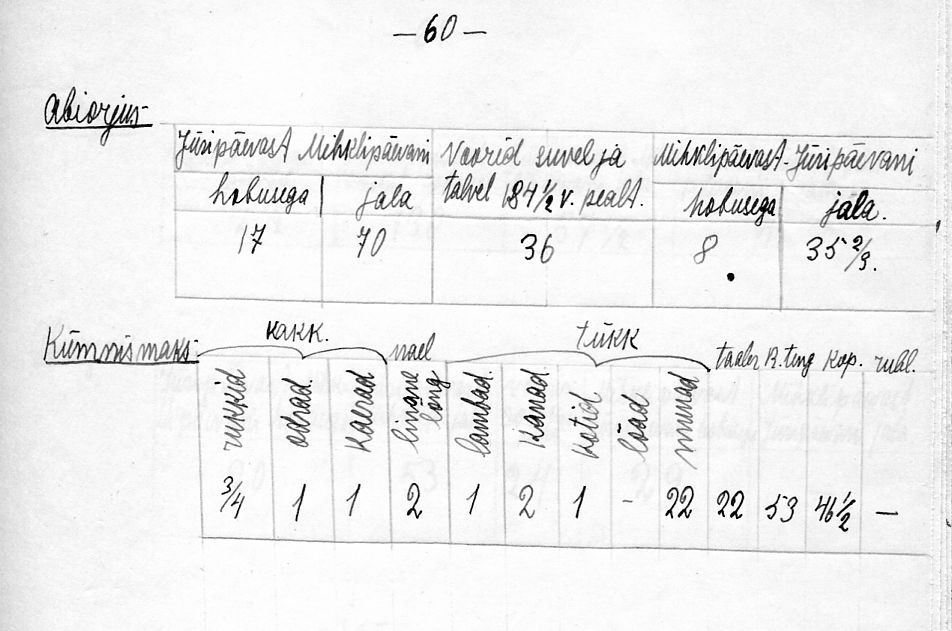 — 60 —
Abiorjus-
Jüripäevast Mihklipäevani Voorid suvel ja Mihklipäevast- Jüripäevani
hobusega jala talvel 184 1/2 v. pealt. hobusega jala.
17 70 36 8 35 2/3.
Kümnismaks- kakk. nael tükk taaler R. teng kop. rubl.
rukkid odrad kaerad linane long lambad kanad kotid lõõad munad
3/4 1 1 2 1 2 1 - 22 22 53 46 1/2 —